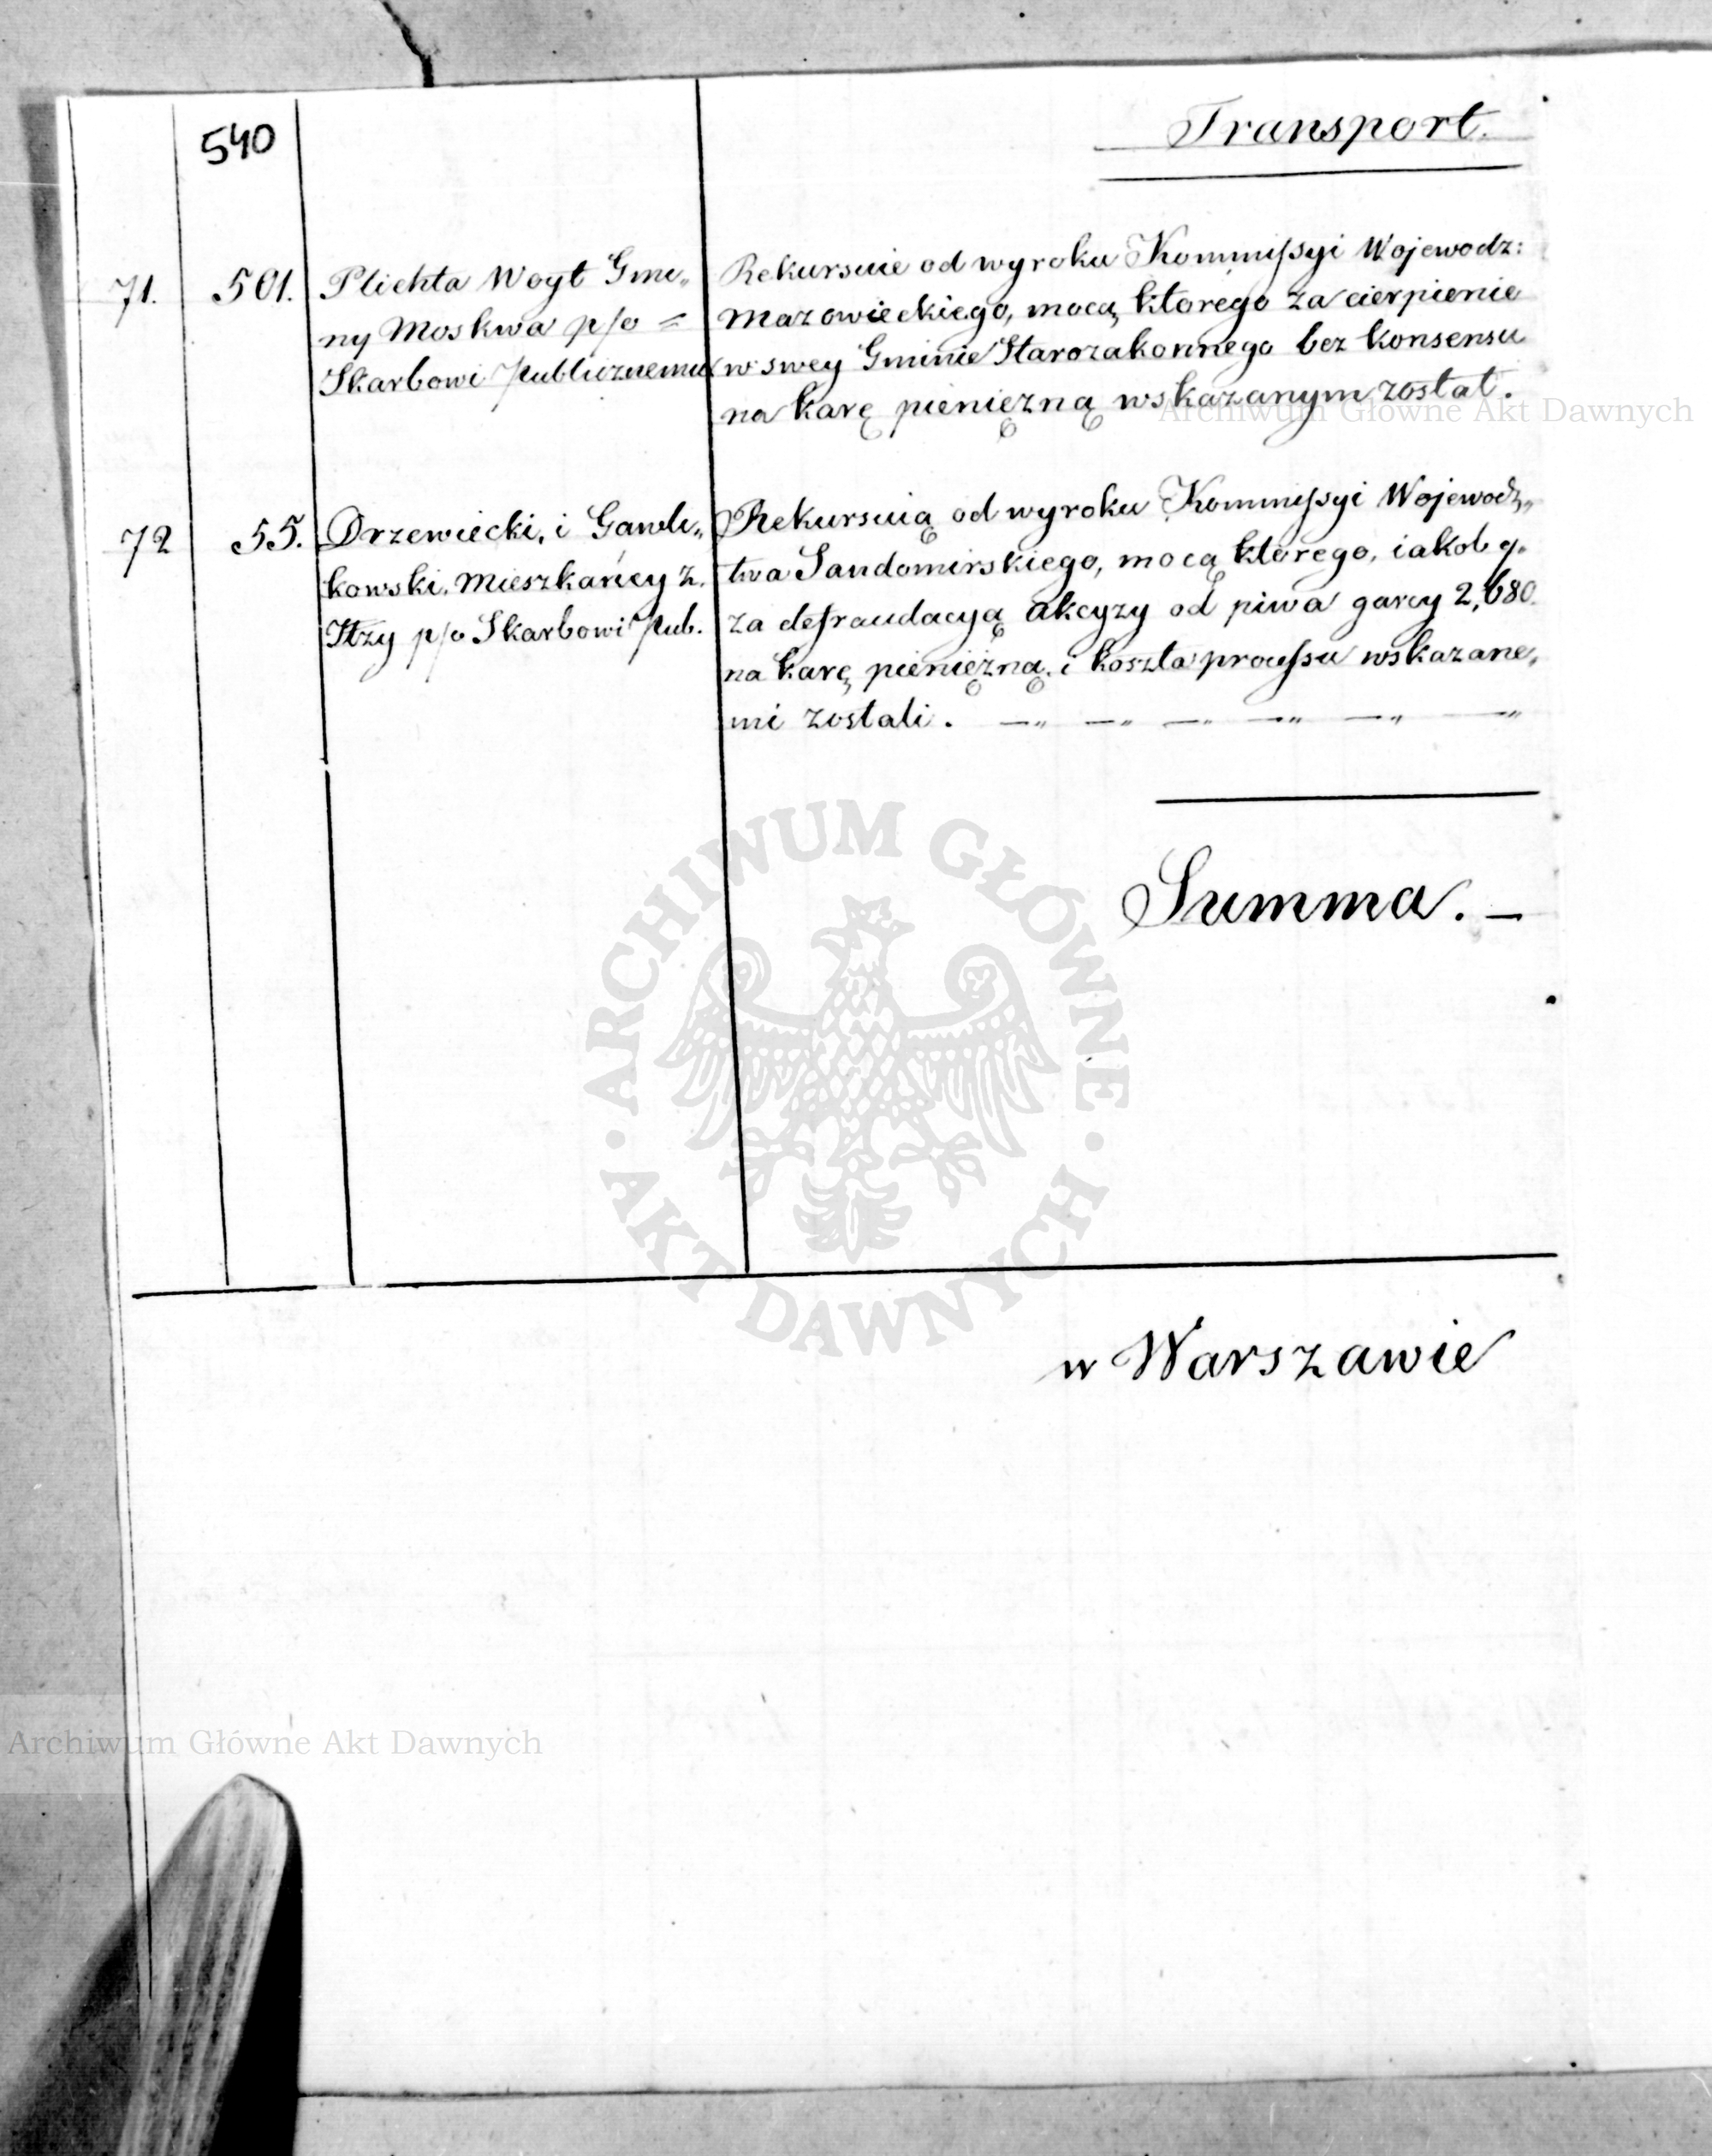 540
Transport.
71. 501. Plichta Woyt Gmi„
ny Moskwa p/o =
Skarbowi Publicznemu
Rekursuie od wyroku Kommissyi Wojewodz:
Mazowieckiego, mocą ktorego za cierpienie
w swey Gminie Starozakonnego bez konsensu
na karę pieniężną wskazanym został.
72 55. Drzewiecki, i Gawli„
kowski. Mieszkańcy z.
Iłży p/o Skarbowi Pub.
Rekursuią od wyroku Kommissyi Wojewodz„
twa Sandomirskiego, mocą ktorego, iakoby
za defraudacyą akcyzy od piwa garcy 2,680.
na karę pieniężną. i koszta processu wskazane„
mi zostali. —„ —„ —„ —„ —„ —„
Summa. —
w Warszawie
Archiwum Główne Akt Dawnych
ARCHIWUM GŁÓWNE
· AKT DAWNYCH ·
Archiwum Główne Akt Dawnych